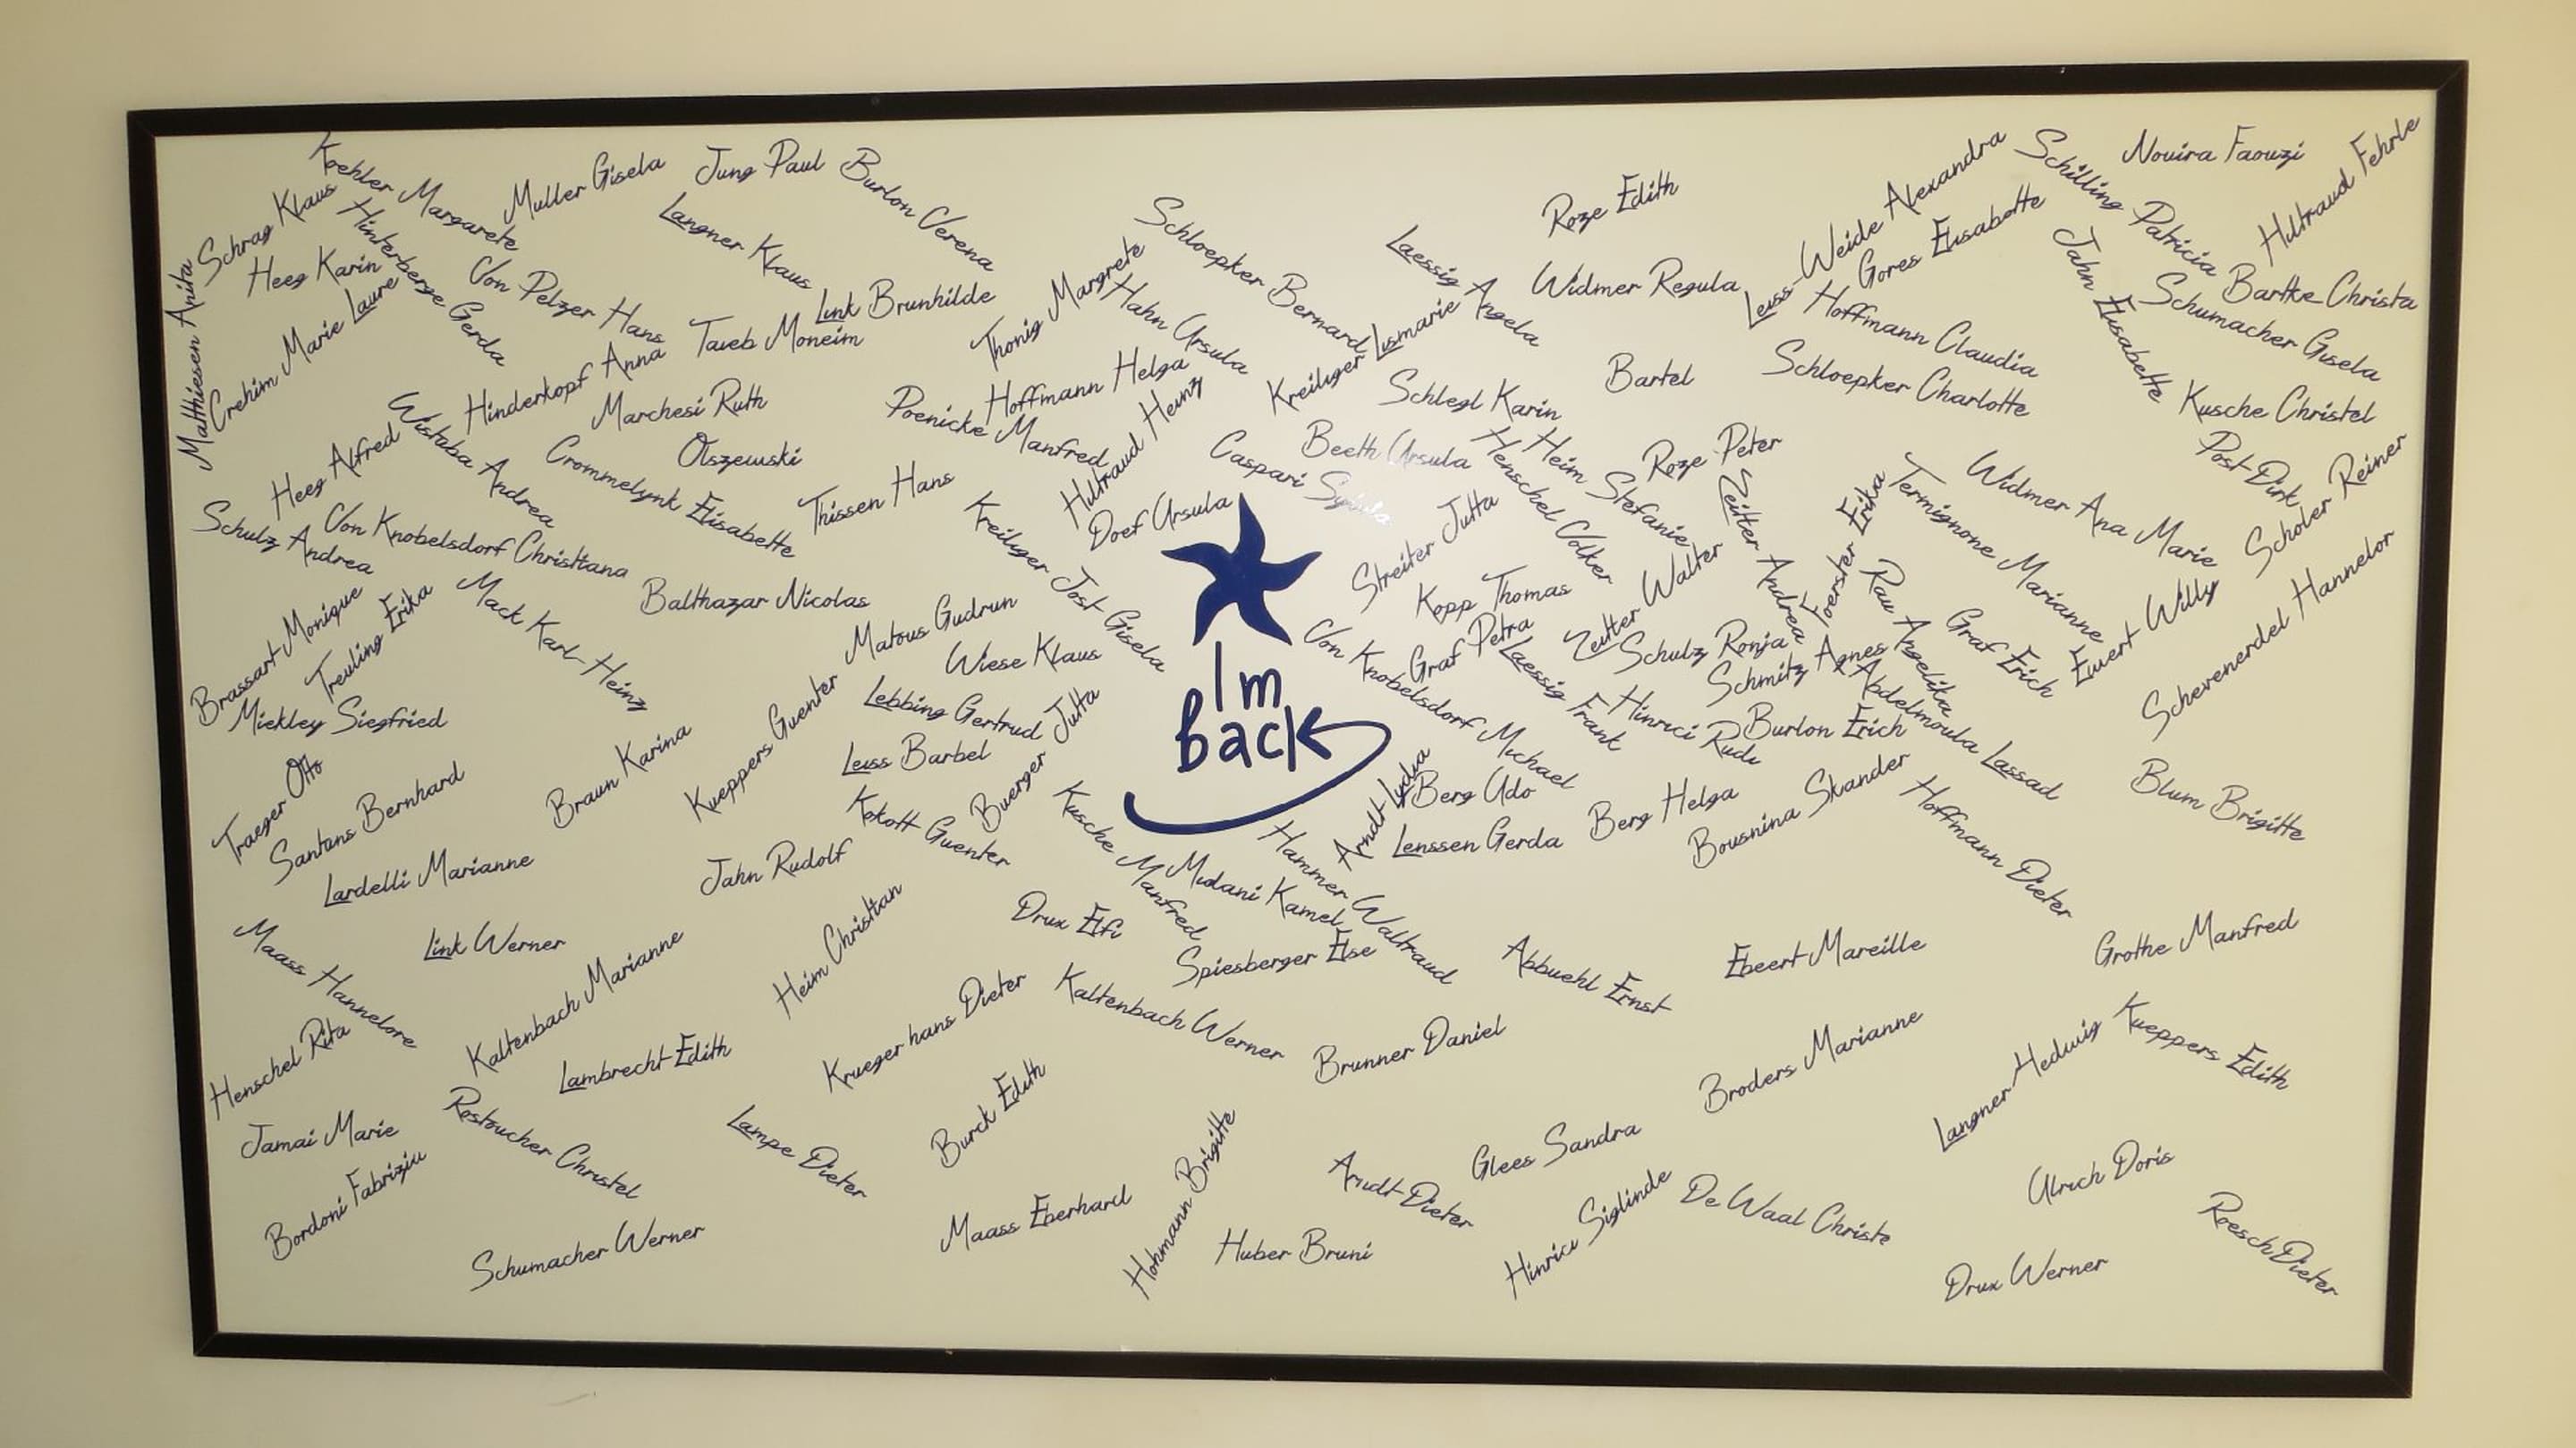 Koehler Margarete
Schrag Klaus
Muller Gisela
Jung Paul
Burlon Verena
Langner Klaus
Heeg Karin
Hinterberge Gerda
Von Pelzer Hans
Matthiesen Anita
Crehim Marie Laure
Link Brunhilde
Taieb Moneim
Hinderkopf Anna
Marchesi Ruth
Thonig Margrete
Schloepker Bernard
Hahn Ursula
Hoffmann Helga
Poenicke Manfred
Hiltraud Heinz
Laessig Angela
Kreiliger Lismarie
Roze Edith
Widmer Regula
Leiss-Weide Alexandra
Gores Elisabette
Schilling Patricia
Nouira Faouzi
Hiltraud Fehrle
Hoffmann Claudia
Jahn Elisabette
Bartke Christa
Schumacher Gisela
Schlegl Karin
Bartel
Schloepker Charlotte
Kusche Christel
Heeg Alfred
Wistuba Andrea
Olszewski
Crommelynk Elisabette
Thissen Hans
Caspari
Beeth Ursula
Henschel Volker
Heim Stefanie
Roze Peter
Post Dirk
Scholer Reiner
Widmer Ana Marie
Termignone Marianne
Schulz Andrea
Von Knobelsdorf Christiana
Kreiliger Jost Gisela
Doef Ursula
Streiter Jutta
Zeitter Andrea
Foerster Erika
Rau Angelika
Brassart Monique
Treuling Erika
Mack Karl-Heinz
Balthazar Nicolas
Matous Gudrun
Wiese Klaus
Kopp Thomas
Graf Petra
Zeitter Walter
Schulz Ronja
Schmitz Agnes
Graf Erich
Ewert Willy
Schevenerdel Hannelor
Mickley Siegfried
Kueppers Guenter
Lebbing Gertrud
Leiss Barbel
Buerger Jutta
I m
back
Von Knobelsdorf Michael
Laessig Frank
Hinrici Rudi
Burlon Erich
Abdelmoula Lassad
Traeger Otto
Santans Bernhard
Braun Karina
Kokott Guenter
Kusche Manfred
Arndt Lydia
Berg Udo
Lenssen Gerda
Berg Helga
Bousnina Skander
Hoffmann Dieter
Blum Brigitte
Lardelli Marianne
Jahn Rudolf
Midani Kamel
Hammer Waltraud
Maass Hannelore
Link Werner
Kaltenbach Marianne
Heim Christian
Drux Elfi
Spiesberger Else
Abbuehl Ernst
Ebeert Mareille
Grothe Manfred
Henschel Rita
Lambrecht Edith
Krueger hans Dieter
Kaltenbach Werner
Brunner Daniel
Broders Marianne
Langner Hedwig
Kueppers Edith
Jamai Marie
Rostoucher Christel
Lampe Dieter
Burck Edith
Hohmann Brigitte
Arndt Dieter
Glees Sandra
Ulrich Doris
Bordoni Fabriziu
Schumacher Werner
Maass Eberhard
Huber Bruni
Hinrici Siglinde
De Waal Christe
Drux Werner
Roesch Dieter